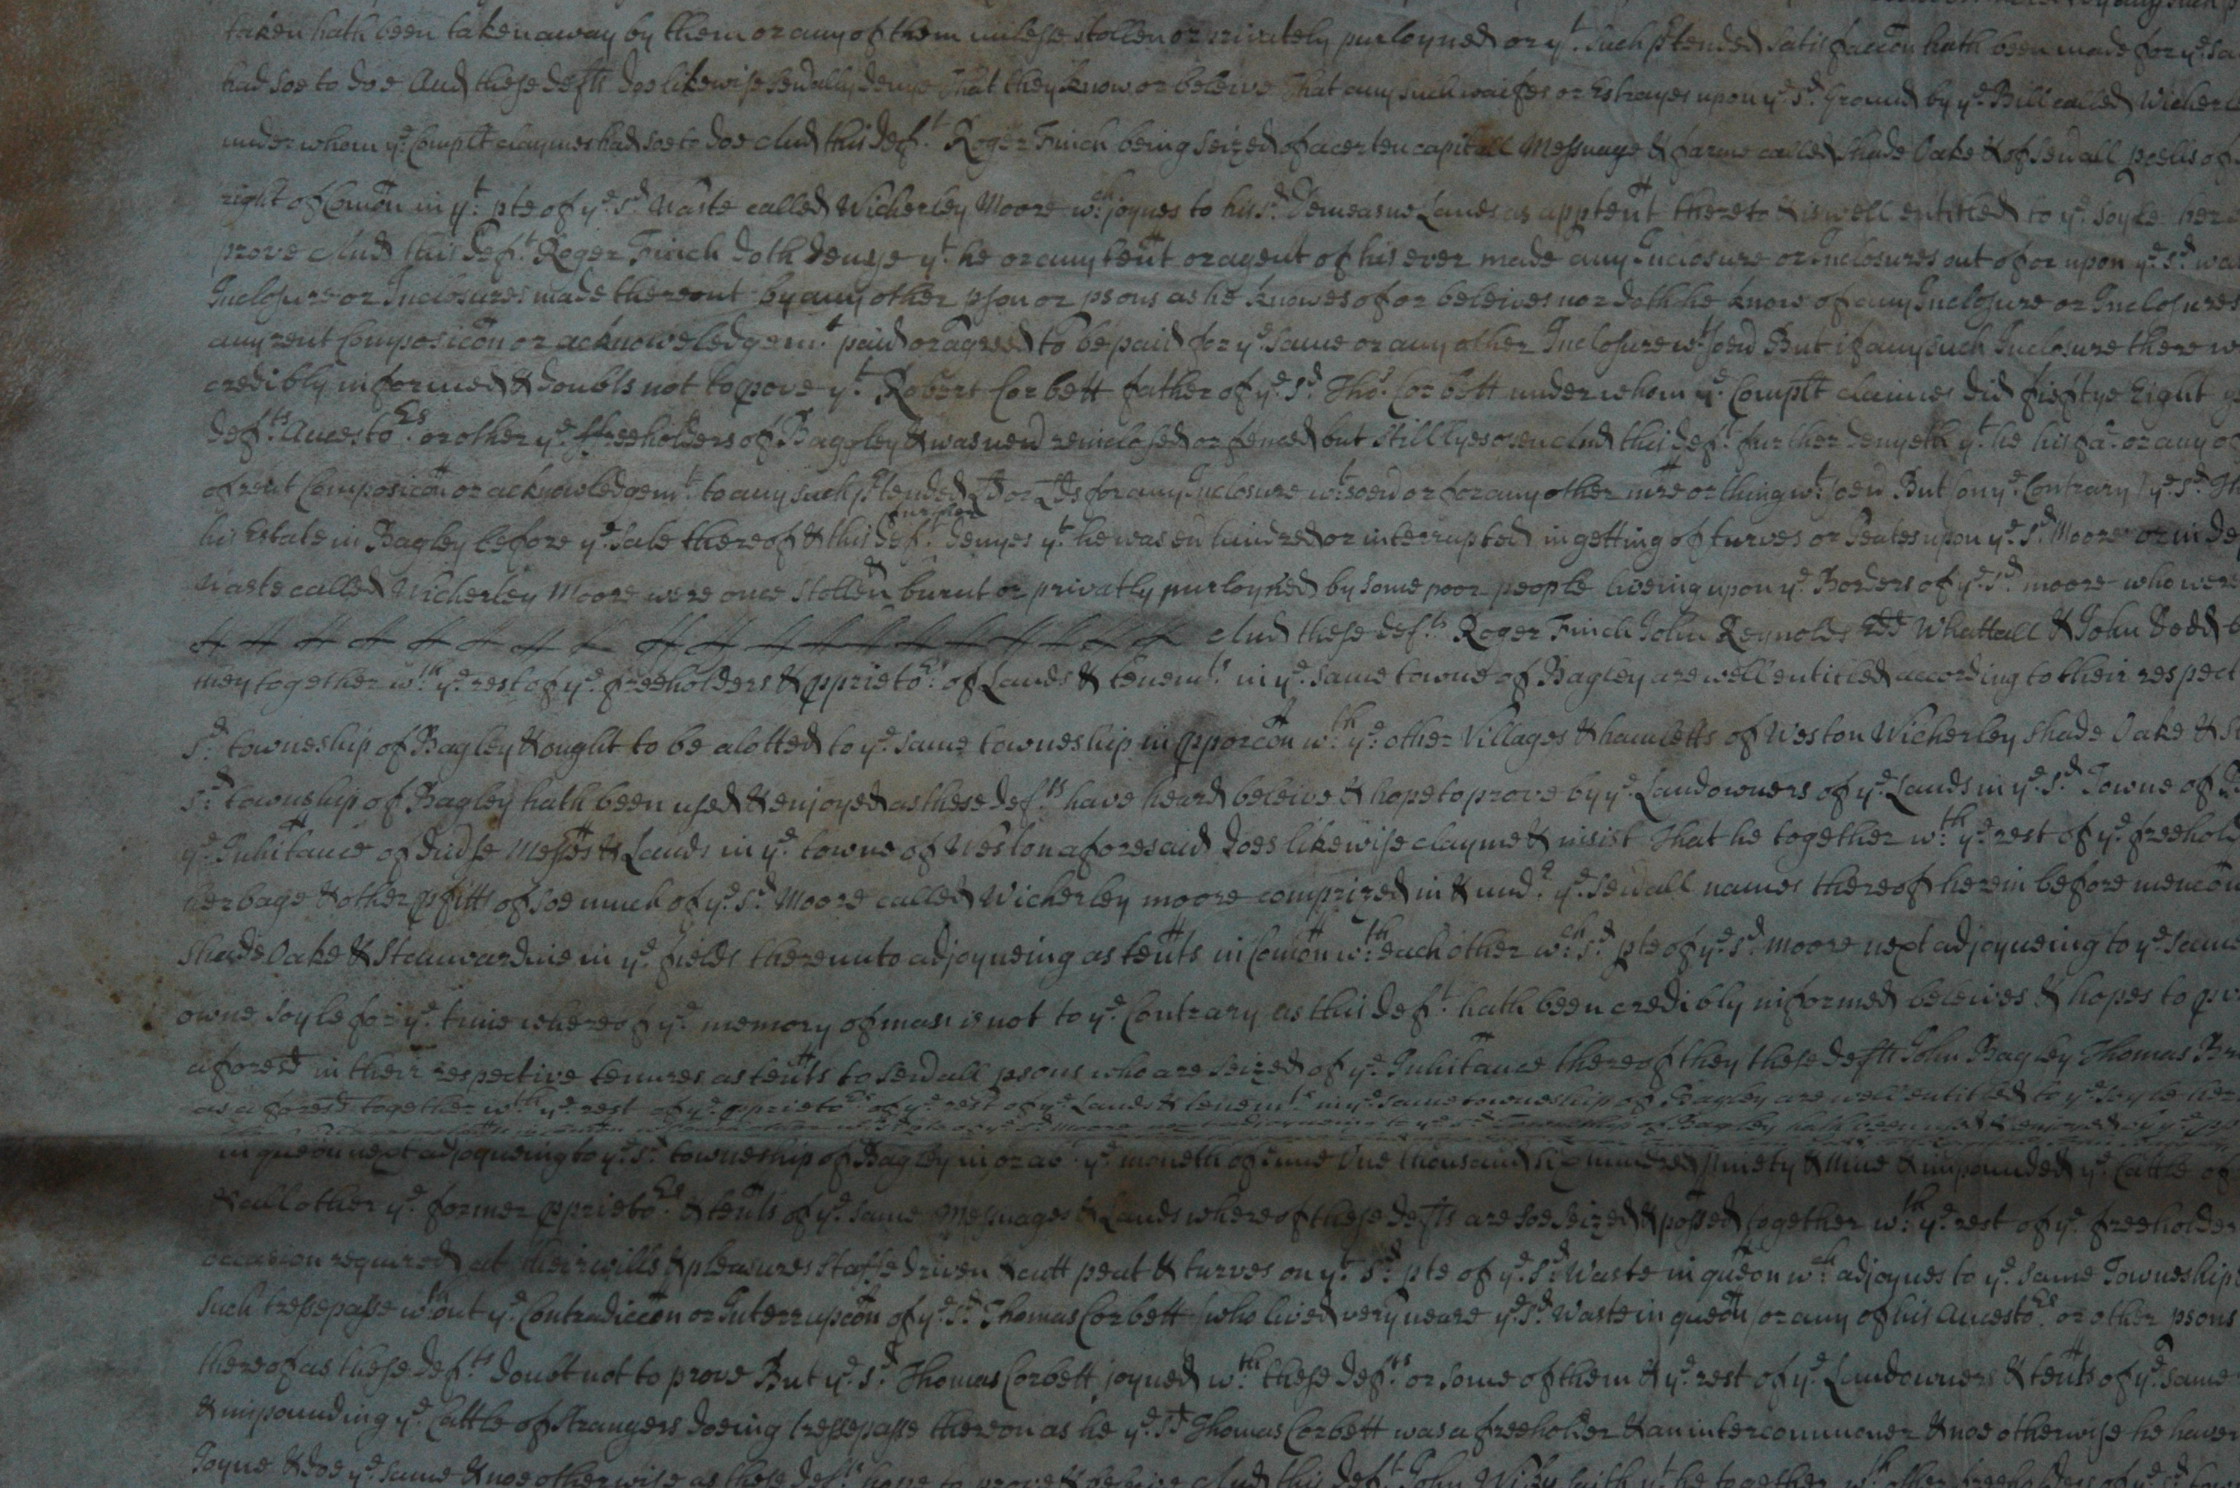 taken hath been taken away by them or any of them unlesse stollen or privately purloyned or yt. such ptended satisfaccon hath been made for ye. sa
had soe to doe And these defts doe likewise sevally denye That they know or beleive That any such waifes or Estrayes upon ye. sd. ground by ye. Bill called Wicherl
under whom ye. Complt claymes had soe to doe And this deft. Roger Finch being seized of a certen capitall Messuage & farme called Shade Oake & of sevall pcells of
right of Comon in yt. pte of ye. sd. Waste called Wicherley Moore wch. joynes to his sd. Demeasne Lands as apptent thereto & is well entitled to ye. soyle her
prove And this deft. Roger Finch doth denye yt. he or any tent or agent of his ever made any Inclosure or Inclosures out of or upon ye. sd. wa
Inclosure or Inclosures made thereout by any other pson or psons as he knowes of or beleives nor doth he know of any Inclosure or Inclosures
any rent Composicon or acknowledgemt. paid or agreed to be paid for ye. same or any other Inclosure wt.soevr But if any such Inclosure there w
credibly informed & doubts not to prove yt. Robert Corbett father of ye. sd. Tho: Corbett under whom ye. Complt claimes did Eight
defts. Ancestors or other ye. ffreeholders of Baggley & was nevr reinclosed or fenced but still lyes open And this deft. further denyeth yt. he his far. or any o
of rent Composicon or acknowledgemt. to any such ptended Ld or Lds for any Inclosure wt.soevr or for any other mre or thing wt.soevr But (on ye. Contrary) ye. sd. Th
his Estate in Bagley before ye. Sale thereof & this deft. further denyes yt. he was evr hindred or interrupted in getting of turves or Peates upon ye. sd. Moore or in de
Waste called Wicherley Moore were once stollen burnt or privatly purloyned by some poor people liveing upon ye. Borders of ye. sd. moore who wer
And these defts. Roger Finch John Reynolds Whattall & John Dodd
they together wth. ye. rest of ye. freeholders & pprietors. of Lands & tenemts. in ye. same towne of Bagley are well entitled according to their respect
sd. towneship of Bagley & ought to be alotted to ye. same towneship in pporcon wth. ye. other Villages & hamletts of Weston Wicherley Shade Oake & S
sd. township of Bagley hath been used & enjoyed as these defts have heard beleive & hope to prove by ye. Landowners of ye. Lands in ye. sd. Towne of
ye. Inhitance of divse Messts & Lands in ye. towne of Weston aforesaid does likewise clayme & insist That he together wth. ye. rest of ye. freehold
herbage & other pfitts of soe much of ye. sd. Moore called Wicherley moore comprized in & undr. ye. sevall names thereof herein before mencon
Shade Oake & Stanwardine in ye. fields thereunto adjoyneing as tents in Comon wth. each other wch. sd. pte of ye. sd. moore next adjoyneing to ye. same
owne soyle for ye. time whereof ye. memory of man is not to ye. Contrary as this deft. hath been credibly informed beleives & hopes to pr
aforesd in their respective tenures as tents to sevall psons who are seized of ye. Inhitance thereof they these defts John Bagley Thomas Br
as aforesd together wth. ye. rest of ye. pprietors. of ye. rest of ye. Lands & tenemts. in ye. same towneship of Bagley are well entitled to ye. soyle her
in queon next adjoyneing to ye. sd. towneship of Bagley in or ao. ye. moneth of June One thousand six hundred ninety & nine & impounded ye. Cattle of
& all other ye. former pprietors. & tents of ye. same Messuages & Lands whereof these defts are soe seized & possed together wth. ye. rest of ye. freeholder
occasion required at their wills & pleasures staffe driven & cutt peat & turves on yt. sd. pte of ye. sd. Waste in queon wch. adjoynes to ye. same Towneship
such tressepasse wthout ye. Contradiccon or Interrupcon of ye. sd. Thomas Corbett (who lived very neare ye. sd. Waste in queon) or any of his Ancestors. or other psons
thereof as these defts. doubt not to prove But ye. sd. Thomas Corbett joyned wth. these defts. or some of them & ye. rest of ye. Landowners & tents of ye. same
& impounding ye. Cattle of strangers doeing tressepasse thereon as he ye. sd. Thomas Corbett was a freeholder & an intercommoner & noe otherwise he haver
Joyne & doe ye. same & noe otherwise as these defts. hope to prove & beleive And this deft. John saith yt. he together wth. other freeholders of ye. sd.